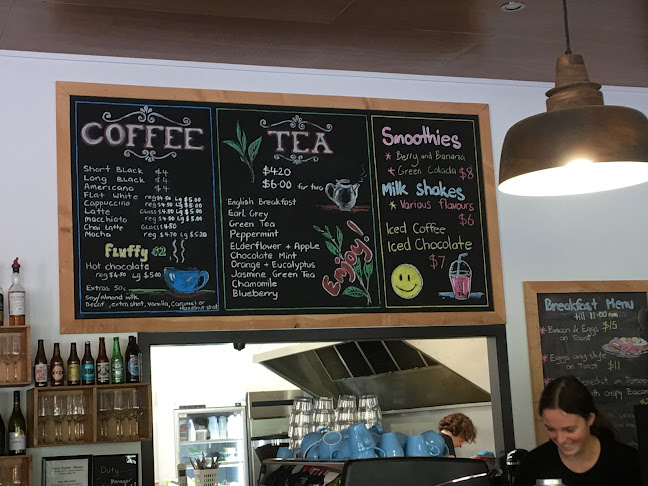 COFFEE
Short Black $4
Long Black $4
Americano $4
Flat White reg $4.50 Lg $5.00
Cappuccino reg $4.50 Lg $5.00
Latte Glass $4.50 Lg $5.00
Macchiato reg $4.50 Lg $5.00
Chai Latte Glass $4.50
Mocha reg $4.70 Lg $5.20
Fluffy $2
Hot chocolate
reg $4.50 Lg $5.00
Extras 50c
Soy/Almond milk
Decaf, extra shot, Vanilla, Caramel or
Hazelnut shot
TEA
$4.20
$6.00 for two
English Breakfast
Earl Grey
Green Tea
Peppermint
Elderflower + Apple
Chocolate Mint
Orange + Eucalyptus
Jasmine Green Tea
Chamomile
Blueberry
Enjoy!
Smoothies
* Berry and Banana
* Green Colada $8
Milk shakes
* Various flavours
$6
Iced Coffee
Iced Chocolate
$7
Breakfast Menu
till 11:00
* Bacon & Eggs $15
on Toast
* Eggs any style
on Toast $11
Duty
Manager